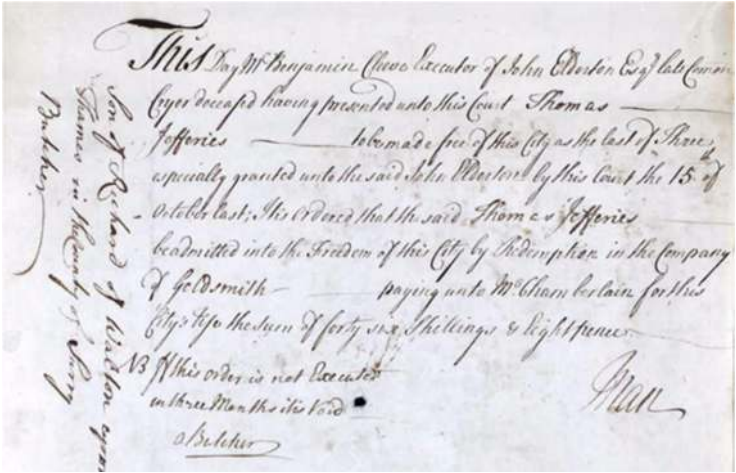 This Day Mr Benjamin Cleeve Executor of John Elderton Esqr late Comon
Cryer deceas'd having presented unto this Court Thomas
Jefferies to be made free of this City as the last of Three
especially granted unto the said John Elderton by this Court the 15th of
October last; It is Ordered that the said Thomas Jefferies
be admitted into the Freedom of this City by Redemption in the Company
of Goldsmith paying unto Mr Chamberlain for this
City's Use the sum of forty six Shillings & Eight pence
NB If this order is not Executed
in three Months it is Void
Man
Son of Richard of Walton upon
Thames in the County of Surry
Butcher